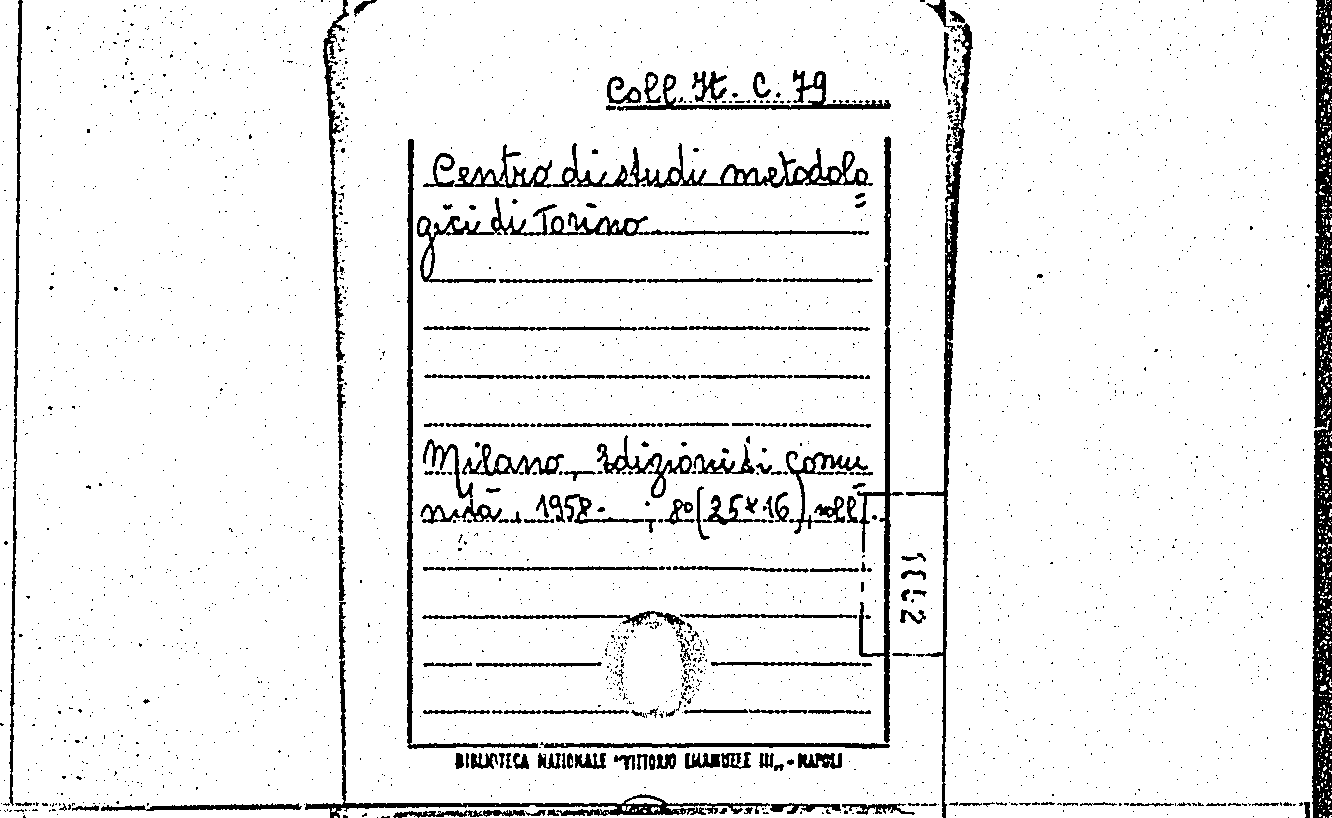 Coll. It. C. 79
Centro di studi metodolo=
gici di Torino
Milano, Edizioni di comu=
nità, 1958- ; 8° (25x16), voll.
BIBLIOTECA NAZIONALE "VITTORIO EMANUELE III„ - NAPOLI